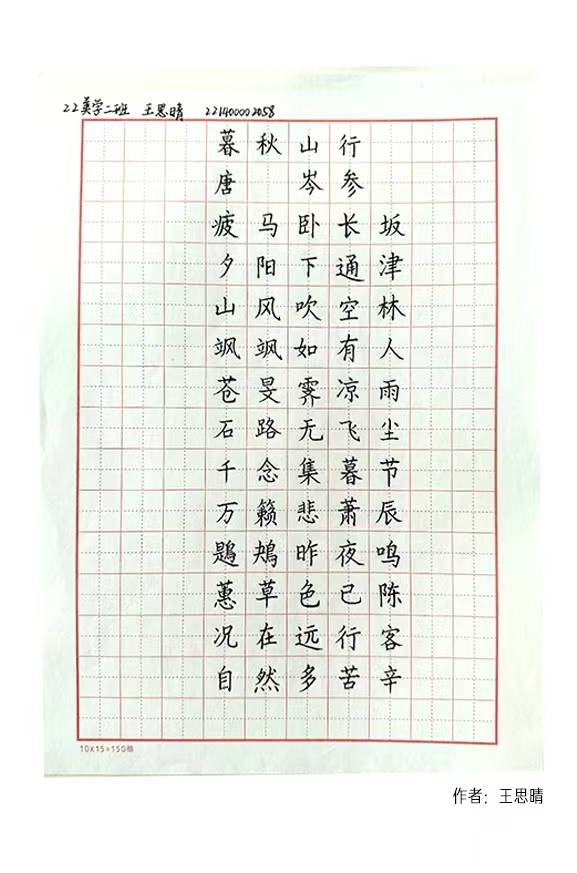 22美学二班 王思晴 221400002058
暮秋山行
唐 岑参
疲马卧长坂
夕阳下通津
山风吹空林
飒飒如有人
苍旻霁凉雨
石路无飞尘
千念集暮节
万籁悲萧辰
鶗鴂昨夜鸣
蕙草色已陈
况在远行客
自然多苦辛
10X15=150格
作者：王思晴